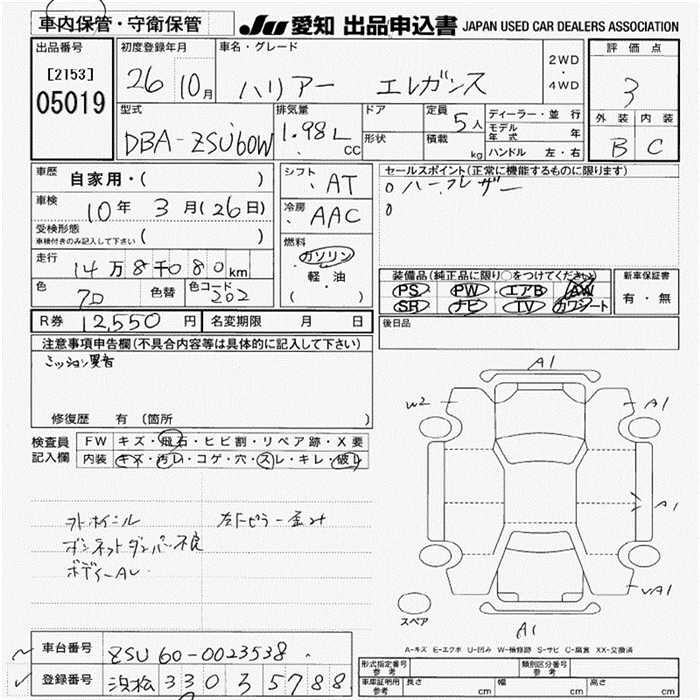 車内保管・守衛保管
JU 愛知 出品申込書 JAPAN USED CAR DEALERS ASSOCIATION
出品番号
[2153]
05019
初度登録年月
26 10月
車名・グレード
ハリアー エレガンス
2WD
・
4WD
評価点
3
外装 内装
B C
型式
DBA-ZSU60W
排気量
1.98L
CC
ドア
形状
定員
5人
積載
kg
ディーラー・並行
モデル年式 年
ハンドル 左・右
車歴
自家用・( )
車検
10年 3月(26日)
受検形態
車検付きのみ記入して下さい ( )
走行
14万8千080km
色
色替
色コード
202
シフト
AT
冷房
AAC
燃料
ガソリン
軽・油
( )
セールスポイント(正常に機能するものに限ります)
ハーフレザー
装備品(純正品に限り○をつけてください)
PS PW エアB AW
SR ナビ TV カワシート
新車保証書
有・無
R券 12,550円
名変期限 月 日
後日品
注意事項申告欄(不具合内容等は具体的に記入して下さい)
ミッション異音
修復歴 有 (箇所 )
検査員
記入欄
FW キズ・飛石・ヒビ割・リペア跡・X要
内装 キズ・汚レ・コゲ・穴・スレ・キレ・破レ
A1
W2
A1
A1
A1
スペア
A-キズ E-エクボ U-凹み W-補修跡 S-サビ C-腐食 XX-交換済
ボンネットダンパー不良
車台番号
ZSU60-0023538
登録番号
浜松 330 ス 5788
形式指定番号
参考
類別区分番号
参考
車庫証明用
参考
長さ cm
幅 cm
高さ cm